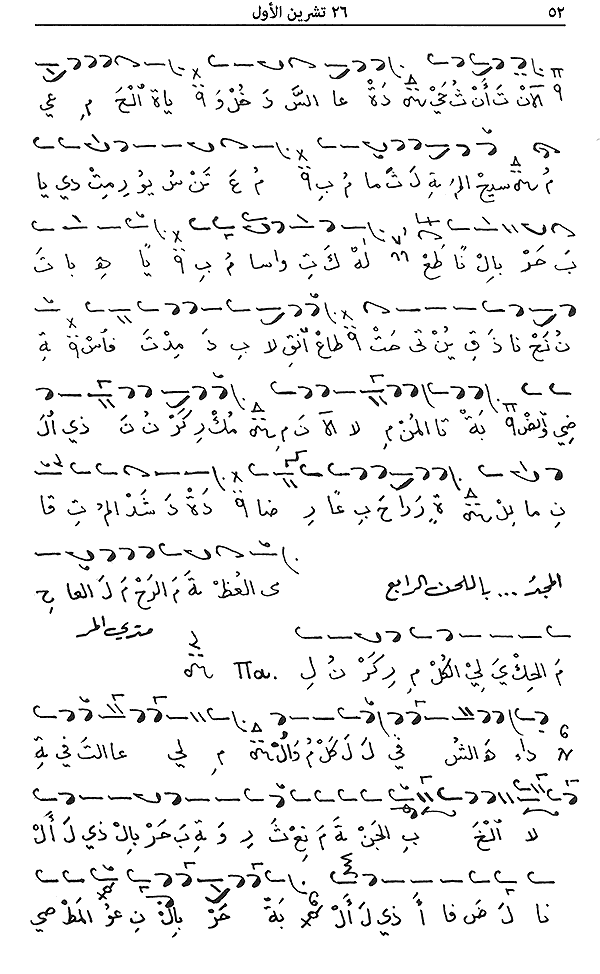 ٥٢ ٢٦ تشرين الأول
الآنْ تَ أَنْ تُ خَيْ دَةْ عا السَّ دَ خُلْ وَ ياةَ الْحَ مِ عي
مُ سيحْ المَ ةِ لَ ثَ ما مُ بِ مُ عَ تَنْ سْ يو رِ مِتْ دي يا
بَ حَرْ بِالْ نا طَعْ لَهْ كَ تِ واسا مُ بِ يًا هِ با تَ
نُ نَحْ نا ذَ قِ يُنْ تى حَتْ طاعْ انْقِ لا بِ دَ مِدْتَ فاسْ ةِ
ضي وَالضْ بَةْ تا المُنْ مِ لا الآ نَ مِ مُكْ رِ كَرْ نُ تَ ذي الْ
نِ ما بِلْ ةٍ رَ را حَ بِ عًا رِ ضا دَةْ دَ شَدْ المُ تِ قا
المجدَ ... باللحن الرابع ى العُظْ مَ الرَحْ مَ لَ العا حِ
متري المر
مَ الحِكْ يَ لِيْ الكُلْ مِ رِ كَرْ نُ لِ Πα.
داءِ هَ الشُ في لَ لَ كَلْ مُ دَالْ مِ لي عا التَ في ةِ
لا الْغَ بِ الجَنْ ةَ مَ نِعْ ثَ رِ وَ ةِ بَ حَرْ بِالْ ذي لَ أَلْ
نا لَ ضَ فا أَ ذي لَ أَلْ بَةْ حَرْ بِالْ نِ عو المَطْ صي